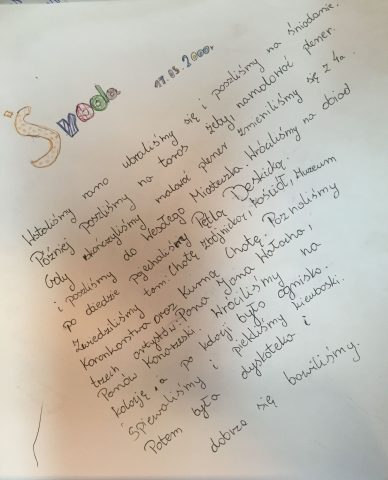 Środa 17.05.2000r
Wstaliśmy rano ubraliśmy się i poszliśmy na śniadanie.
Później poszliśmy na taras żeby namalować plener.
Gdy skończyliśmy malować plener zmieniliśmy się z 4a
i poszliśmy do Wesołego Miasteczka. Wróciliśmy na obiad
po obiedzie pojechaliśmy
Zwiedziliśmy tam: Chatę Zbójnicką, Kościół, Muzeum
Koronkarstwa oraz Kurną Chatę. Poznaliśmy
trzech artystów: Pana Jana Wałacha,
Panów Konarzewskich. Wróciliśmy na
kolację, a po kolacji było ognisko.
Śpiewaliśmy i piekliśmy kiełbaski.
Potem była dyskoteka i
dobrze się bawiliśmy.